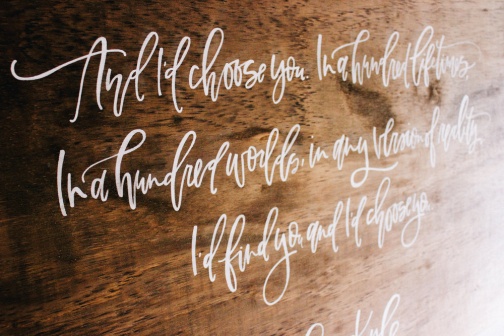 And I'd choose you. In a hundred lifetimes,
In a hundred worlds, in any version of reality,
I'd find you and I'd choose yo
Kyle